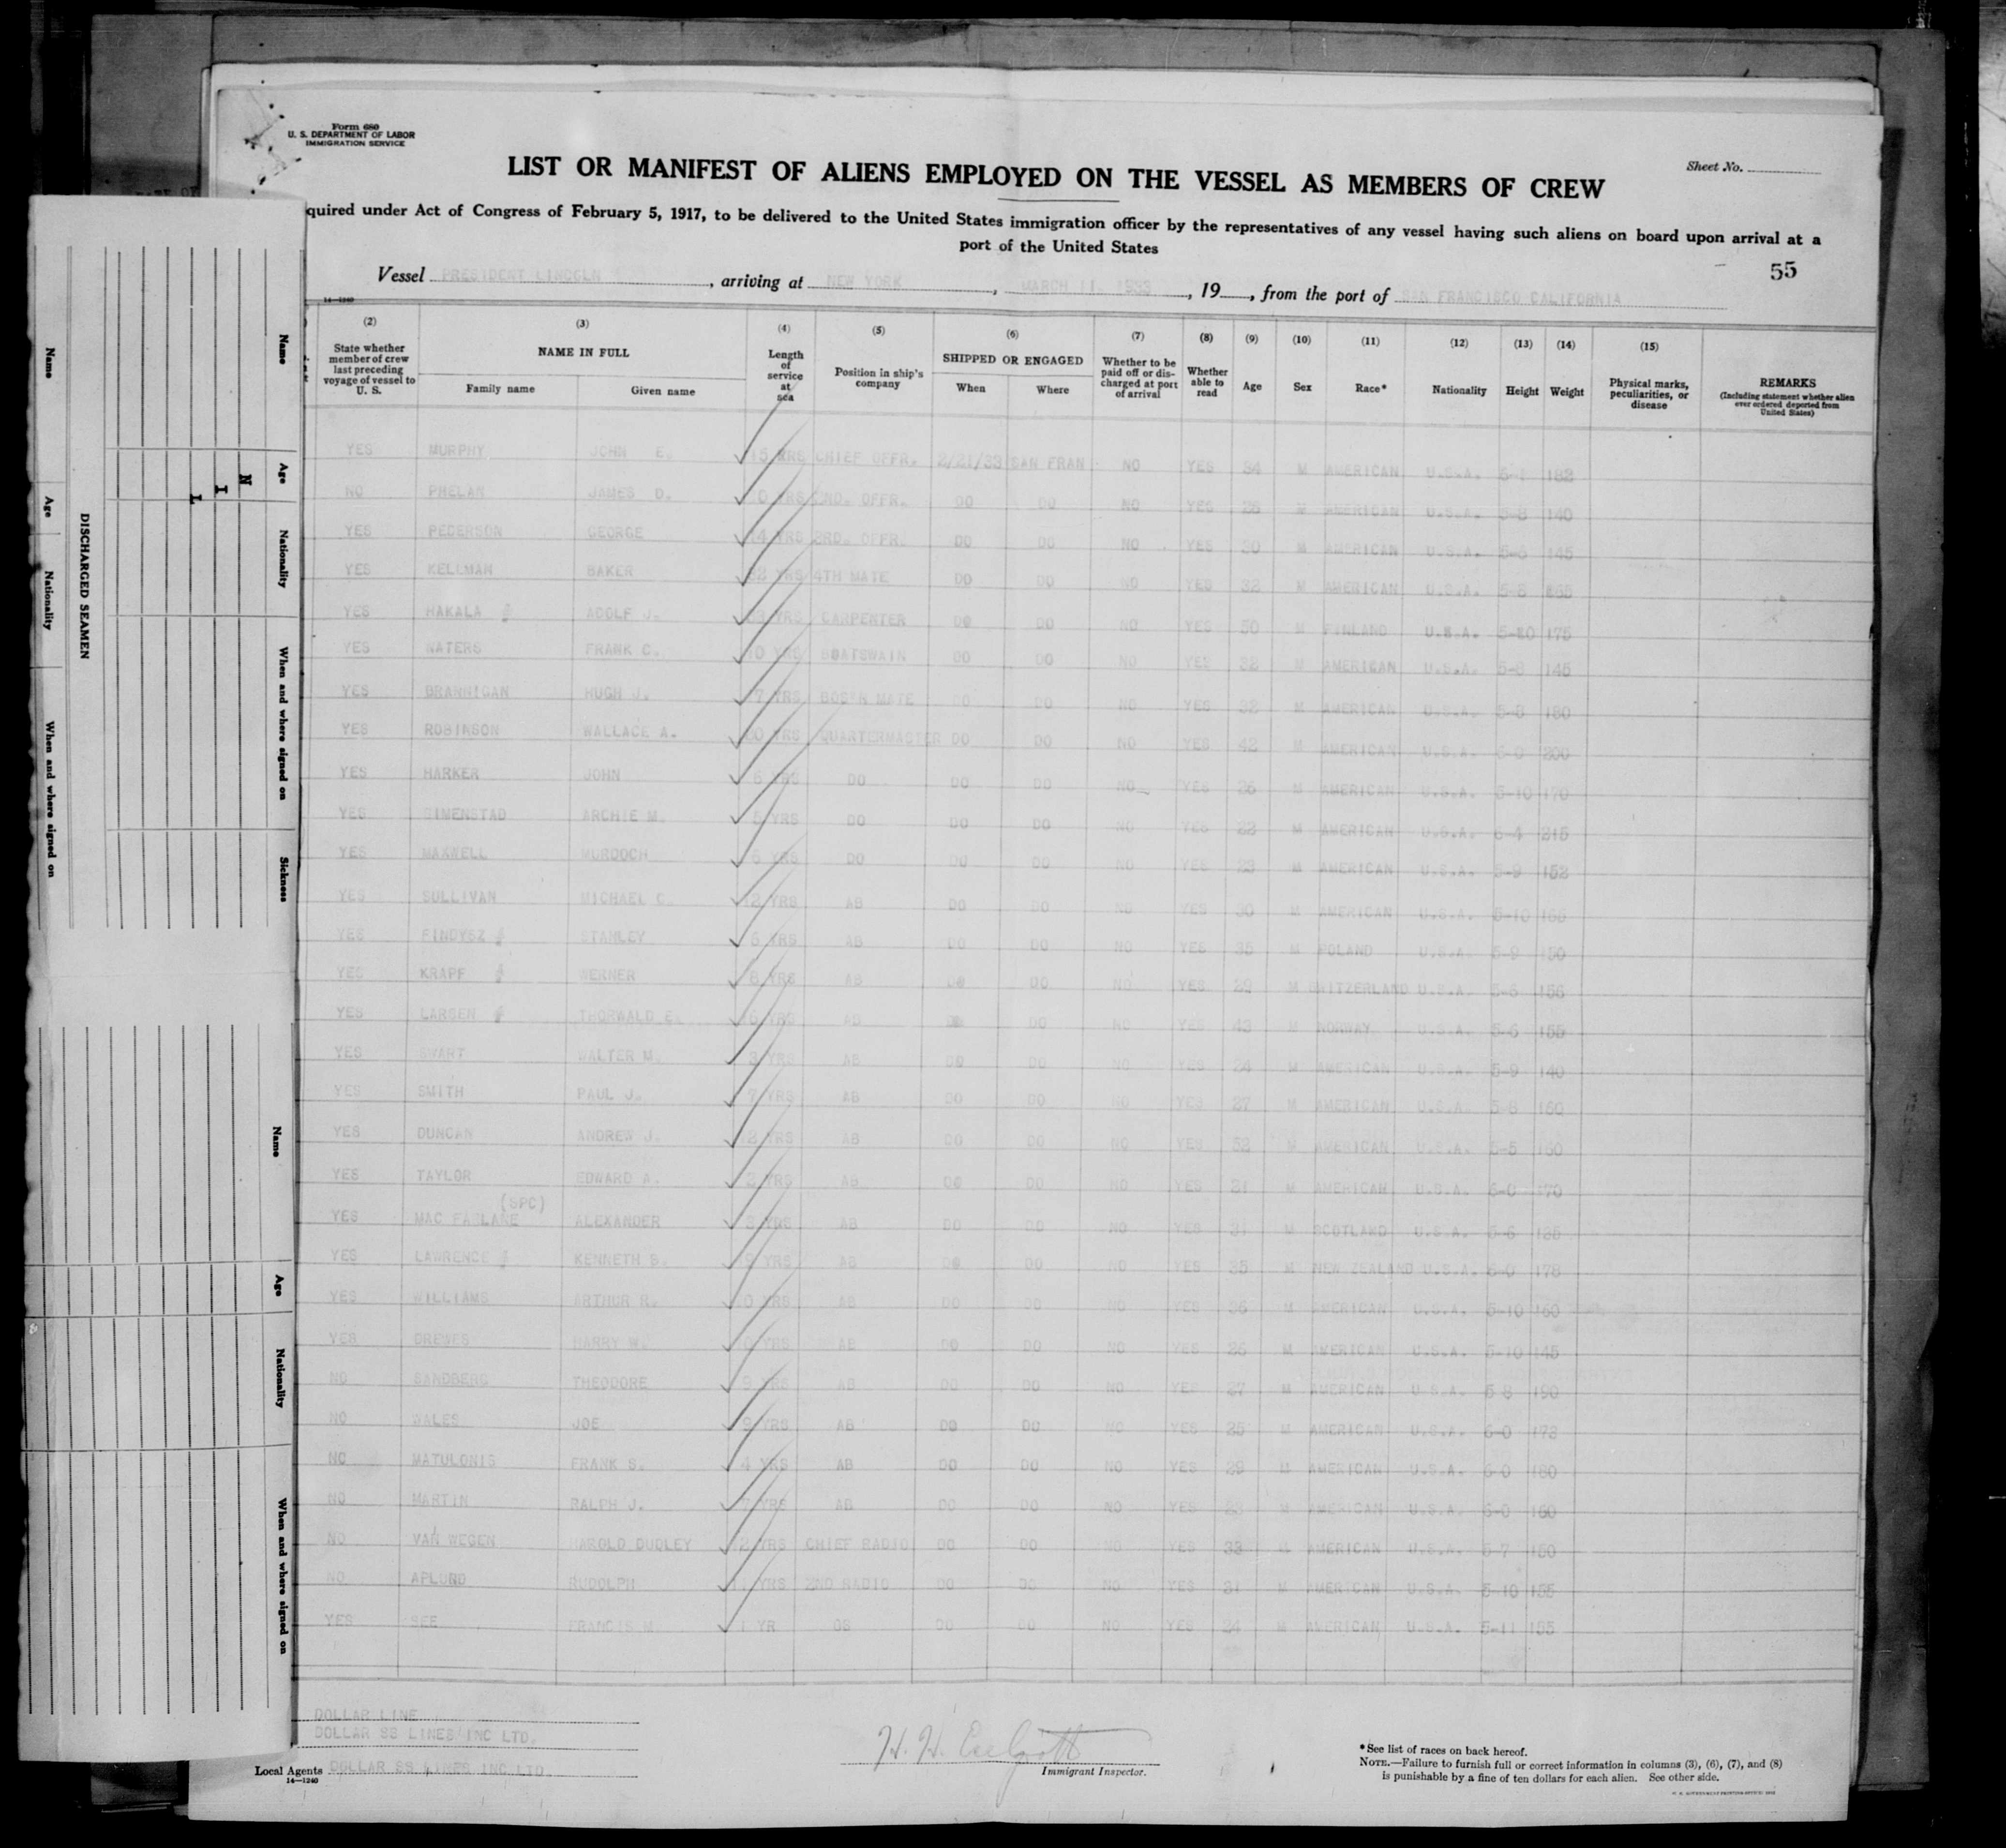 Form 680
U. S. DEPARTMENT OF LABOR
IMMIGRATION SERVICE
Sheet No.
LIST OR MANIFEST OF ALIENS EMPLOYED ON THE VESSEL AS MEMBERS OF CREW
quired under Act of Congress of February 5, 1917, to be delivered to the United States immigration officer by the representatives of any vessel having such aliens on board upon arrival at a
port of the United States
55
Vessel PRESIDENT LINCOLN, arriving at NEW YORK, MARCH 11, 1933, 19, from the port of SAN FRANCISCO CALIFORNIA
14—1240
(2) (3) (4) (5) (6) (7) (8) (9) (10) (11) (12) (13) (14) (15)
State whether member of crew last preceding voyage of vessel to U. S.
NAME IN FULL
Family name Given name
Length of service at sea
Position in ship's company
SHIPPED OR ENGAGED
When Where
Whether to be paid off or discharged at port of arrival
Whether able to read
Age Sex Race* Nationality Height Weight
Physical marks, peculiarities, or disease
REMARKS
(Including statement whether alien ever ordered deported from United States)
YES MURPHY JOHN E. 15 YRS CHIEF OFFR. 2/21/33 SAN FRAN NO YES 34 M AMERICAN U.S.A. 182
NO PHELAN JAMES D. YRS 2ND. OFFR. DO DO NO YES M AMERICAN U.S.A. 5-8 140
YES PEDERSON GEORGE YRS 3RD. OFFR. DO DO NO YES 30 M AMERICAN U.S.A. 145
YES KELLMAN BAKER YRS 4TH MATE DO DO NO YES 32 M AMERICAN U.S.A. 5-8 165
YES HAKALA ADOLF J. YRS CARPENTER DO DO NO YES 50 M FINLAND U.S.A. 5-10 175
YES WATERS FRANK C. YRS BOATSWAIN DO DO NO YES 32 M AMERICAN U.S.A. 5-8 145
YES BRANNIGAN HUGH J. 7 YRS BOS'N MATE DO DO NO YES 32 M AMERICAN U.S.A. 5-8 180
YES ROBINSON WALLACE A. YRS QUARTERMASTER DO DO NO YES 42 M AMERICAN U.S.A. 6-0 200
YES HARKER JOHN 6 YRS DO DO DO NO YES 26 M AMERICAN U.S.A. 5-10 170
YES SIMENSTAD ARCHIE M. 5 YRS DO DO DO NO YES 22 M AMERICAN U.S.A. 6-4 215
YES MAXWELL MURDOCH 6 YRS DO DO DO NO YES 23 M AMERICAN U.S.A. 5-9 152
YES SULLIVAN MICHAEL C. YRS AB DO DO NO YES 30 M AMERICAN U.S.A. 5-10 165
YES FINDYSZ STANLEY 6 YRS AB DO DO NO YES 35 M POLAND U.S.A. 5-9 150
YES KRAPF WERNER 8 YRS AB DO DO NO YES 29 M SWITZERLAND U.S.A. 5-6 156
YES LARSEN THORWALD E. YRS AB DO DO NO YES 43 M NORWAY U.S.A. 5-6 155
YES SWART WALTER M. 3 YRS AB DO DO NO YES 24 M AMERICAN U.S.A. 5-9 140
YES SMITH PAUL J. 7 YRS AB DO DO NO YES 27 M AMERICAN U.S.A. 5-8 160
YES DUNCAN ANDREW J. YRS AB DO DO NO YES 52 M AMERICAN U.S.A. 5-5 160
YES TAYLOR EDWARD A. YRS AB DO DO NO YES M AMERICAN U.S.A. 6-0 170
(SPC)
YES MAC FARLANE ALEXANDER 3 YRS AB DO DO NO YES 31 M SCOTLAND U.S.A. 5-6 135
YES LAWRENCE KENNETH B. YRS AB DO DO NO YES 35 M NEW ZEALAND U.S.A. 6-0 178
YES WILLIAMS ARTHUR R. YRS AB DO DO NO YES 36 M AMERICAN U.S.A. 5-10 160
YES DREWES HARRY W. YRS AB DO DO NO YES 26 M AMERICAN U.S.A. 5-10 145
NO SANDBERG THEODORE 9 YRS AB DO DO NO YES 27 M AMERICAN U.S.A. 5-8 190
NO WALES JOE 9 YRS AB DO DO NO YES 25 M AMERICAN U.S.A. 6-0 173
NO MATULONIS FRANK S. 4 YRS AB DO DO NO YES 29 M AMERICAN U.S.A. 6-0 180
NO MARTIN RALPH J. 7 YRS AB DO DO NO YES 23 M AMERICAN U.S.A. 6-0 160
NO VAN WEGEN HAROLD DUDLEY YRS CHIEF RADIO DO DO NO YES 33 M AMERICAN U.S.A. 5-7 150
NO APLUND RUDOLPH YRS 2ND RADIO DO DO NO YES 31 M AMERICAN U.S.A. 5-10 155
YES SEE FRANCIS M. 1 YR OS DO DO NO YES 24 M AMERICAN U.S.A. 5-11 155
DOLLAR LINE
DOLLAR SS LINES INC LTD.
Local Agents DOLLAR SS LINES INC LTD.
14—1240
H. H.
Immigrant Inspector.
*See list of races on back hereof.
NOTE.—Failure to furnish full or correct information in columns (3), (6), (7), and (8)
is punishable by a fine of ten dollars for each alien. See other side.
DISCHARGED SEAMEN
Name Age Nationality When and where signed on
Name Age Nationality When and where signed on Sickness
N I L
Name Age Nationality When and where signed on